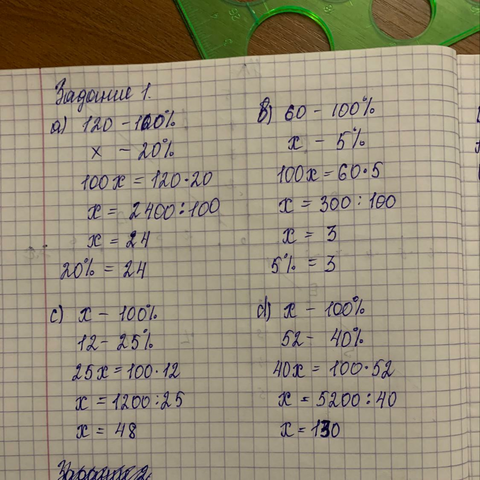 Задание 1.
а) 120 - 100%
x - 20%
100x = 120·20
x = 2400:100
x = 24
20% = 24
b) 60 - 100%
x - 5%
100x = 60·5
x = 300:100
x = 3
5% = 3
c) x - 100%
12 - 25%
25x = 100·12
x = 1200:25
x = 48
d) x - 100%
52 - 40%
40x = 100·52
x = 5200:40
x = 130
Задание 2